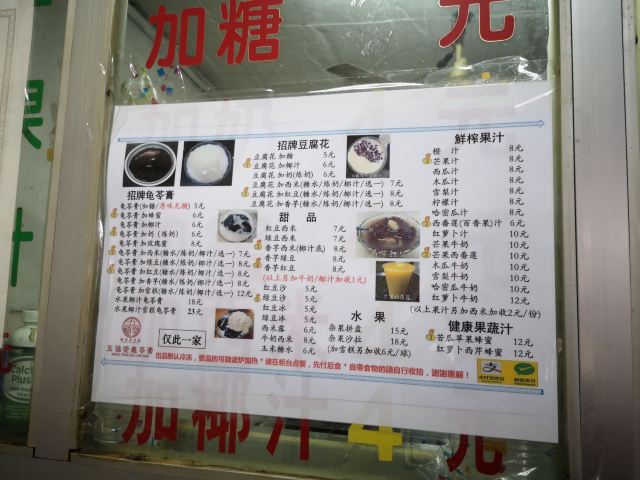 加糖
元
招牌龟苓膏
龟苓膏(加糖/原味无糖) 5元
龟苓膏 加蜂蜜 6元
龟苓膏 加椰汁 6元
龟苓膏 加奶(炼奶) 6元
龟苓膏 加玫瑰蜜 8元
龟苓膏 加西米(糖水/炼奶/椰汁/选一) 7元
龟苓膏 加绿豆(糖水/炼奶/椰汁/选一) 8元
龟苓膏 加红豆(糖水/炼奶/椰汁/选一) 8元
龟苓膏 加香芋(糖水/炼奶/椰汁/选一) 8元
龟苓膏 加雪糕(糖水/炼奶/椰汁/选一) 12元
水果椰汁龟苓膏 18元
水果椰汁雪糕龟苓膏 23元
仅此一家
招牌豆腐花
豆腐花 加糖 5元
豆腐花 加椰汁 6元
豆腐花 加奶(炼奶) 6元
豆腐花 加西米(糖水/炼奶/椰汁/选一) 7元
豆腐花 加红豆(糖水/炼奶/椰汁/选一) 8元
豆腐花 加香芋(糖水/炼奶/椰汁/选一) 8元
甜 品
红豆西米 7元
绿豆西米 7元
香芋西米(椰汁底) 8元
香芋绿豆 8元
香芋红豆 8元
(以上另加牛奶/椰汁加收1元)
红豆沙 5元
绿豆沙 5元
红豆冰 5元
绿豆冰 5元
西米露 6元
牛奶西米 6元
玉米糖水 6元
水 果
杂果拼盘 15元
杂果沙拉 18元
(加雪糕另加收6元/球)
鲜榨果汁
橙 汁 8元
芒果汁 8元
西瓜汁 8元
木瓜汁 8元
雪梨汁 8元
柠檬汁 8元
哈密瓜汁 8元
西番莲(百香果)汁 6元
红萝卜汁 10元
芒果牛奶 10元
芒果西番莲 10元
木瓜牛奶 10元
雪梨牛奶 10元
哈密瓜牛奶 10元
红萝卜牛奶 10元
(以上果汁另加西米加收2元/份)
健康果蔬汁
苦瓜苹果蜂蜜 12元
红萝卜西芹蜂蜜 12元
出品默认冷冻,要温的可微波炉加热 * 请在柜台点餐,先付后食 * 自带食物的請自行收拾,谢谢惠顧!
加椰汁4元
Calcium
Plus